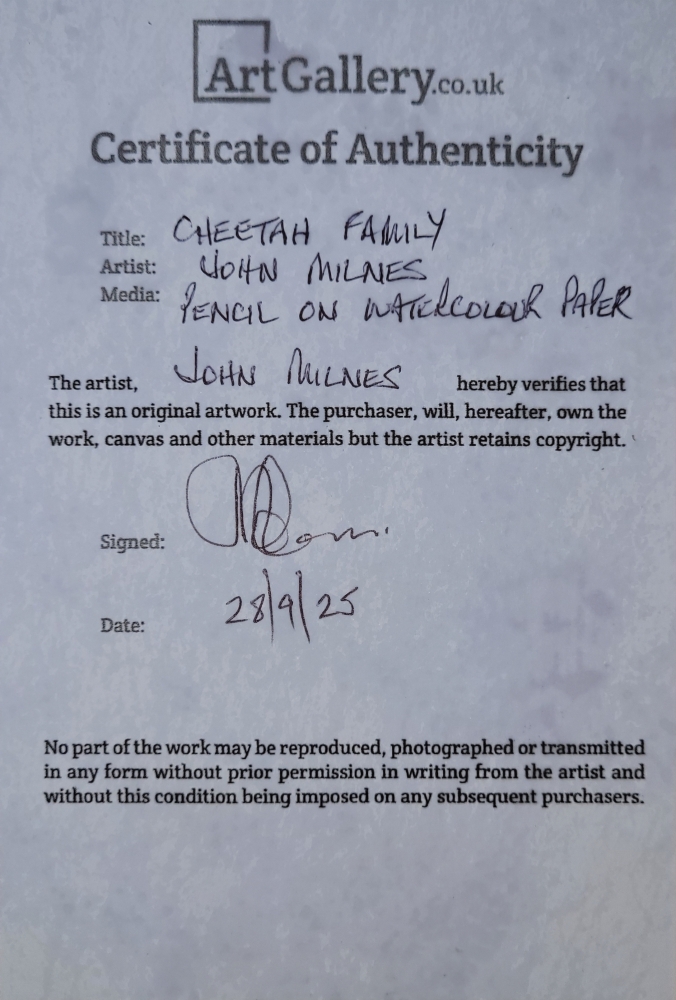 ArtGallery.co.uk
Certificate of Authenticity
Title: CHEETAH FAMILY
Artist: JOHN MILNES
Media: PENCIL ON WATERCOLOUR PAPER
The artist, JOHN MILNES hereby verifies that
this is an original artwork. The purchaser, will, hereafter, own the
work, canvas and other materials but the artist retains copyright.
Signed:
Date: 28/9/25
No part of the work may be reproduced, photographed or transmitted
in any form without prior permission in writing from the artist and
without this condition being imposed on any subsequent purchasers.